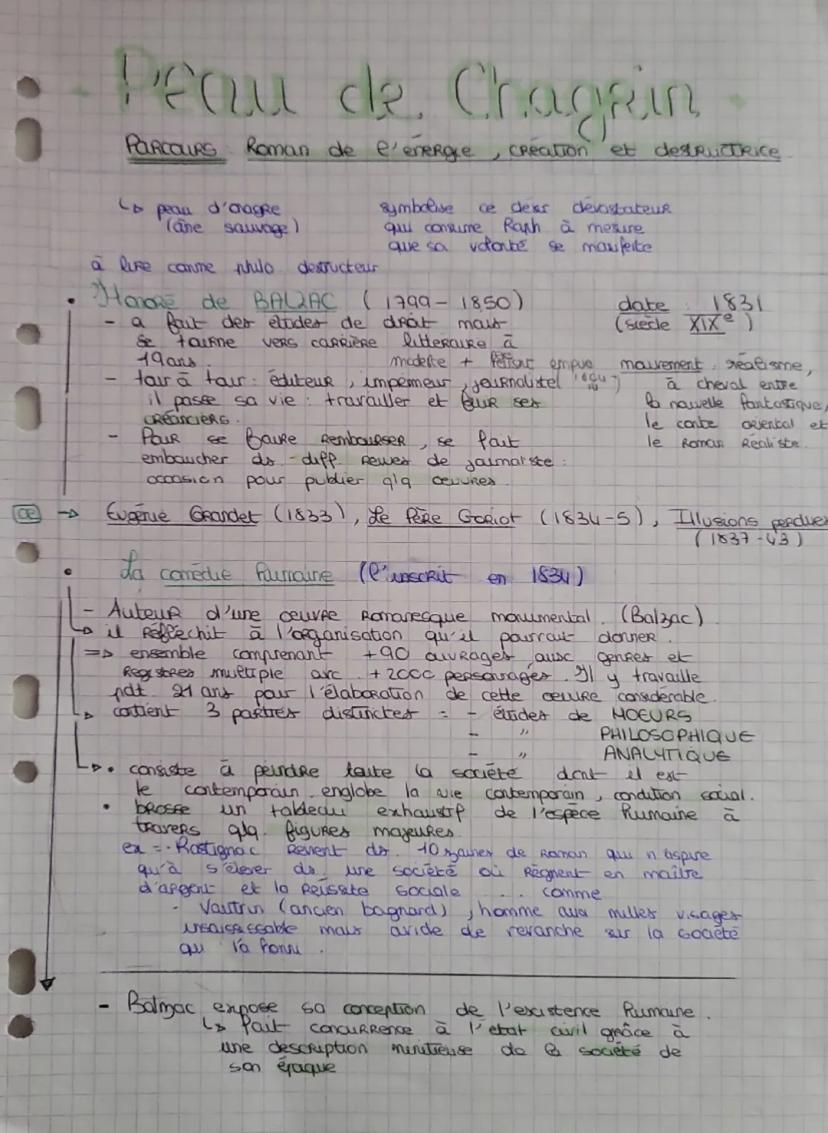 Peau de Chagrin
PARCOURS : Roman de l'énergie, création et destructrice
↳ peau d'onagre
(âne sauvage)
symbolise ce désir dévastateur
qui consume Raph à mesure
que sa volonté se manifeste
à lire comme philo destructeur
• Honoré de BALZAC (1799-1850)
date : 1831
(siècle XIXe)
- a fait des études de droit mais
se tourne vers carrière littéraire à
19 ans.
- tour à tour : éditeur, imprimeur, journaliste
il passe sa vie : travailler et fuir ses
créanciers.
mouvement : réalisme,
à cheval entre
la nouvelle fantastique,
le conte oriental et
le Roman Réaliste.
- Pour se faire rembourser, se fait
embaucher ds diff. revues de journaliste :
occasion pour publier qlq œuvres.
→ Eugénie Grandet (1833), Le Père Goriot (1834-5), Illusions perdues
(1837-43)
• La comédie humaine (l'inscrit en 1834)
- Auteur d'une œuvre Romanesque monumental. (Balzac)
↳ il réfléchit à l'organisation qu'il pourrait donner.
=> ensemble comprenant +90 ouvrages aux genres et
Registres multiple avc +2000 personnages. Il y travaille
pdt 21 ans pour l'élaboration de cette œuvre considérable.
↳ contient 3 parties distinctes = - études de MOEURS
- " PHILOSOPHIQUE
- " ANALYTIQUE
↳ • consiste à peindre toute la société dont il est
le contemporain. englobe la vie contemporain, condition social.
• brosse un tableau exhaustif de l'espèce humaine à
travers qlq. figures majeures.
ex = - Rastignac Revient ds 10zaines de Roman qui n'aspire
qu'à s'élever ds une société où Règnent en maître
d'argent et la Réussite sociale . . comme
- Vautrin (ancien bagnard), homme aux milles visages
insaisissable mais avide de revanche sur la société
qui l'a banni.
- Balzac expose sa conception de l'existence humaine.
↳ fait concurrence à l'état civil grâce à
une description minitieuse de la société de
son époque